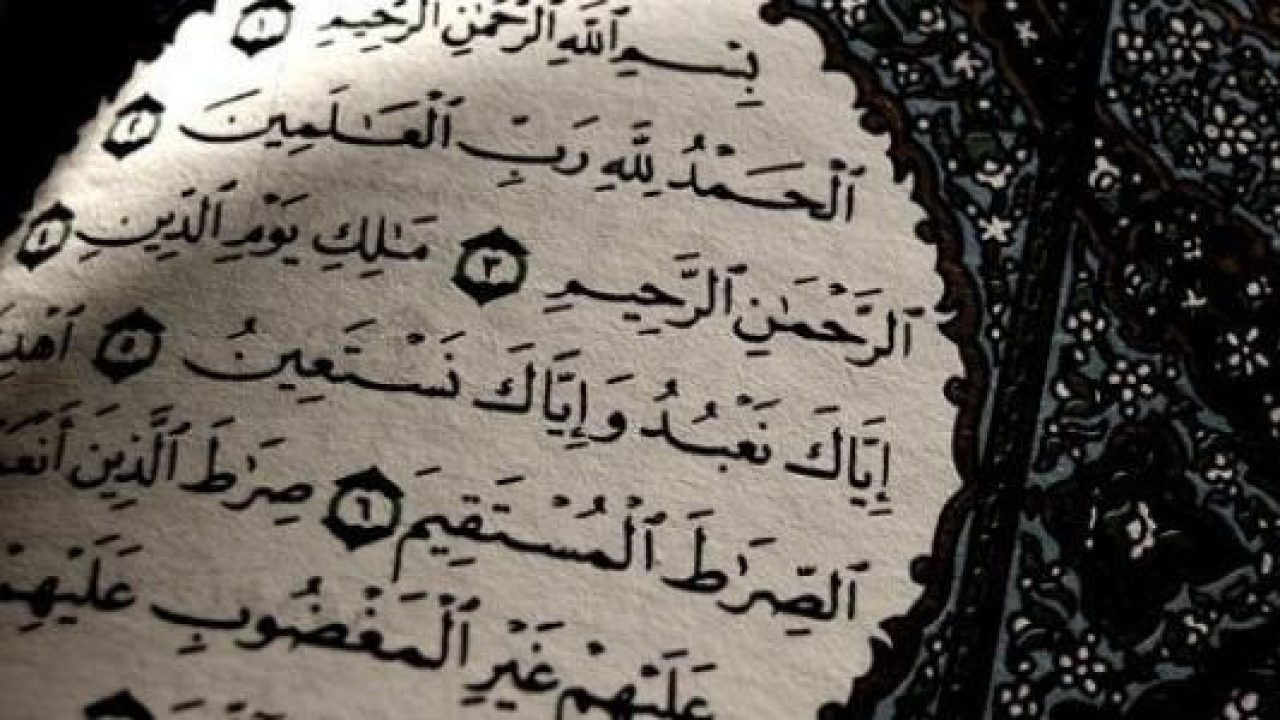 بِسْمِ ٱللَّهِ ٱلرَّحْمَٰنِ ٱلرَّحِيمِ ١
ٱلْحَمْدُ لِلَّهِ رَبِّ ٱلْعَٰلَمِينَ ٢
ٱلرَّحْمَٰنِ ٱلرَّحِيمِ ٣ مَٰلِكِ يَوْمِ ٱلدِّينِ ٤
إِيَّاكَ نَعْبُدُ وَإِيَّاكَ نَسْتَعِينُ ٥
ٱلصِّرَٰطَ ٱلْمُسْتَقِيمَ ٦ صِرَٰطَ ٱلَّذِينَ
عَلَيْهِمْ غَيْرِ ٱلْمَغْضُوبِ عَلَيْهِمْ